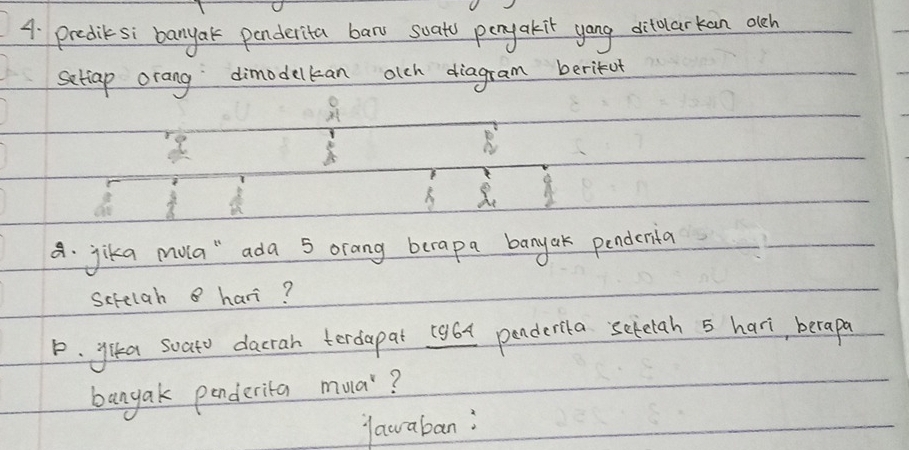 4. prediksi banyak penderita baru suatu penyakit yang ditularkan oleh
setiap orang dimodelkan oleh diagram berikut
a. jika mula" ada 5 orang berapa banyak penderita
setelah 8 hari?
b. jika suatu daerah terdapat 1964 penderita setelah 5 hari, berapa
banyak penderita mula"?
jawaban: